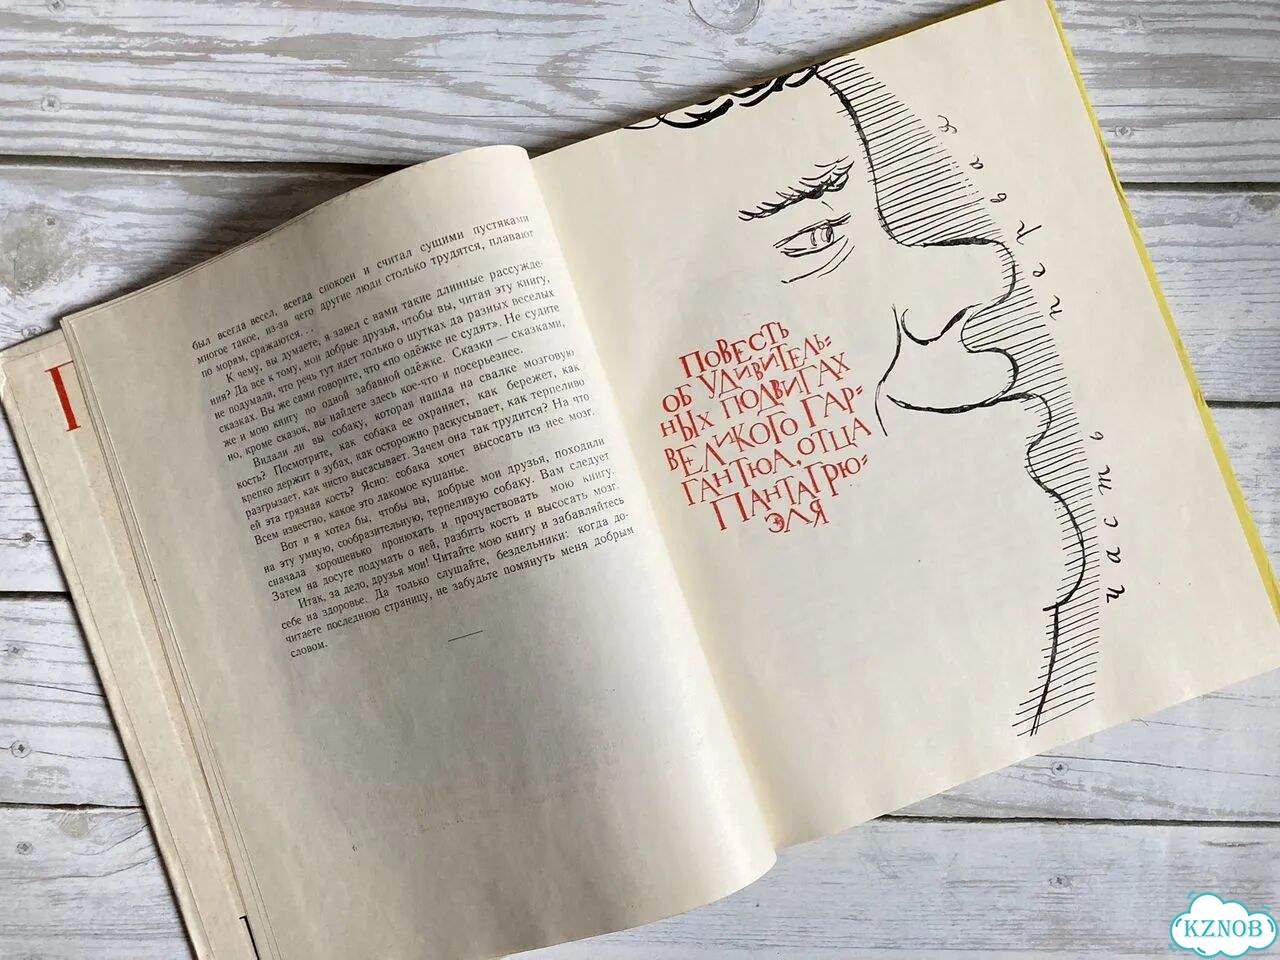 был всегда весел, всегда спокоен и считал сущими пустяками
многое такое, из-за чего другие люди столько трудятся, плавают
по морям, сражаются...
К чему, вы думаете, я завел с вами такие длинные рассужде-
ния? Да все к тому, мои добрые друзья, чтобы вы, читая эту книгу,
не подумали, что речь тут идет только о шутках да разных веселых
сказках. Вы же сами говорите, что «по одёжке не судят». Не судите
же и мою книгу по одной забавной одёжке. Сказки — сказками,
но, кроме сказок, вы найдете здесь кое-что и посерьезнее.
Видали ли вы собаку, которая нашла на свалке мозговую
кость? Посмотрите, как собака ее охраняет, как бережет, как
крепко держит в зубах, как осторожно раскусывает, как терпеливо
разгрызает, как чисто высасывает. Зачем она так трудится? На что
ей эта грязная кость? Ясно: собака хочет высосать из нее мозг.
Всем известно, какое это лакомое кушанье.
Вот и я хотел бы, чтобы вы, добрые мои друзья, походили
на эту умную, сообразительную, терпеливую собаку. Вам следует
сначала хорошенько пронюхать и прочувствовать мою книгу.
Затем на досуге подумать о ней, разбить кость и высосать мозг.
Итак, за дело, друзья мои! Читайте мою книгу и забавляйтесь
себе на здоровье. Да только слушайте, бездельники: когда до-
читаете последнюю страницу, не забудьте помянуть меня добрым
словом.
ПОВЕСТЬ
ОБ УДИВИТЕЛЬ-
НЫХ ПОДВИГАХ
ВЕЛИКОГО ГАР-
ГАНТЮА, ОТЦА
ПАНТАГРЮ-
ЭЛЯ
часть первая
KZNOB